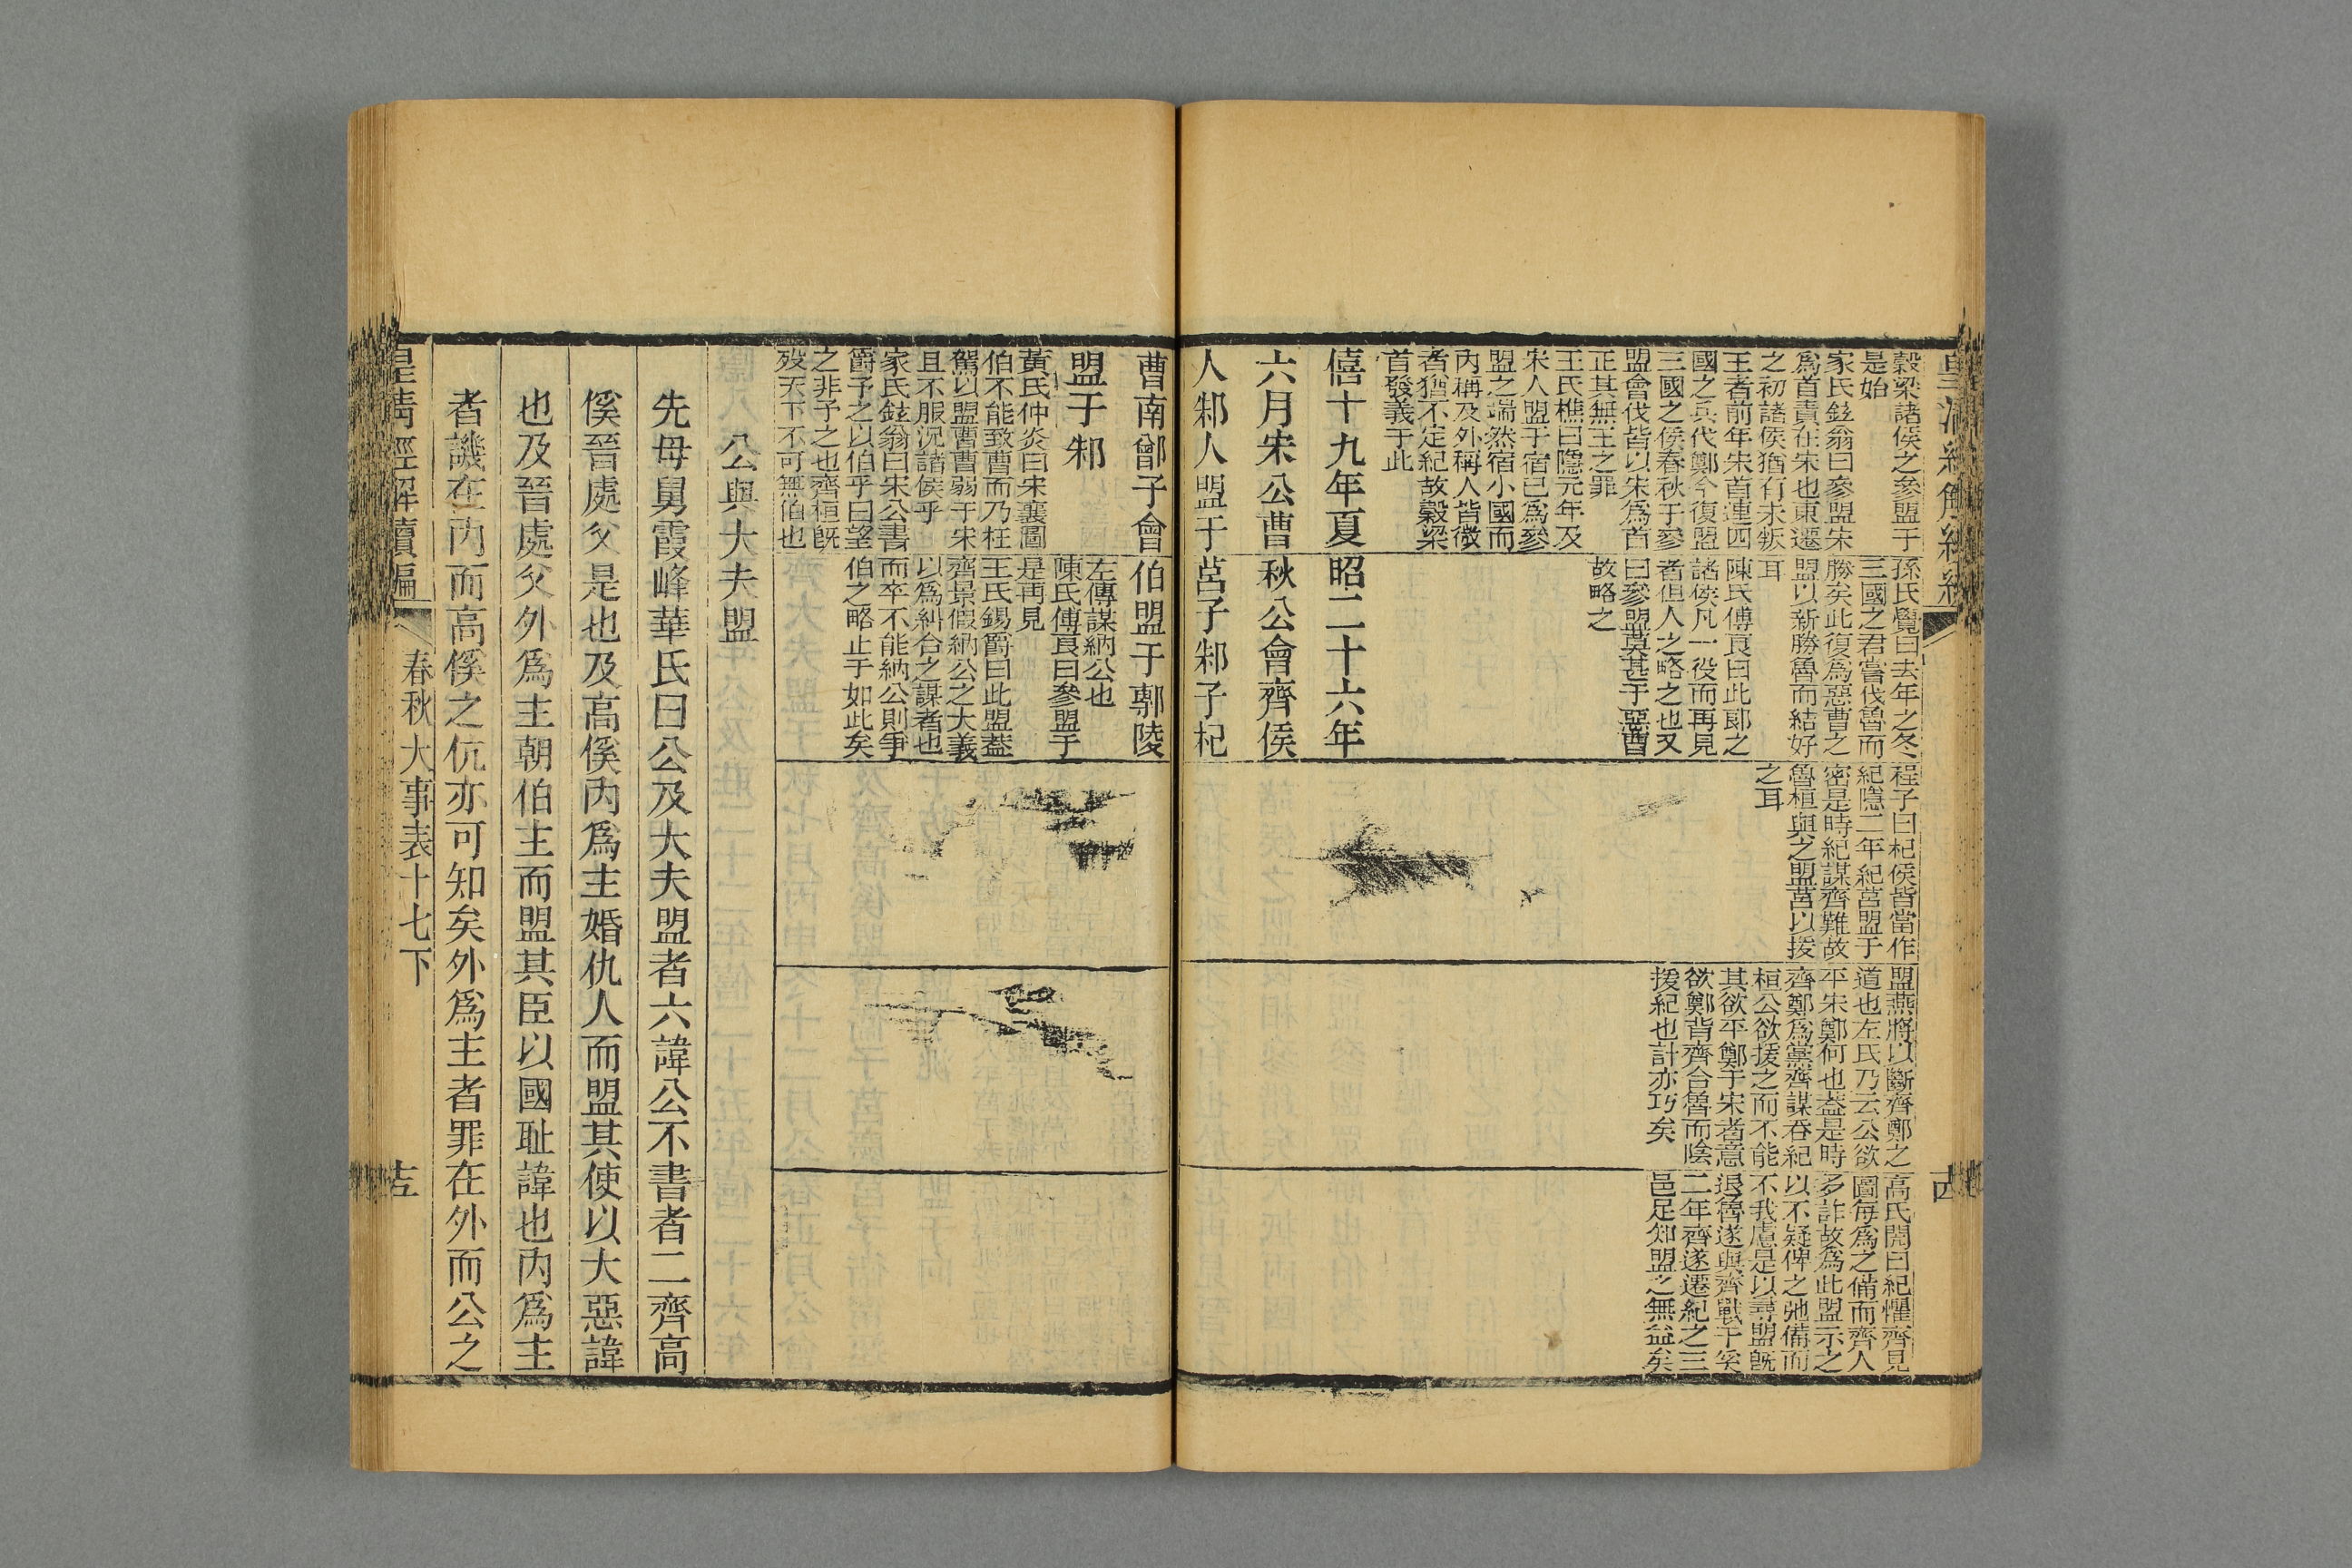 皇清經解續編
穀梁諸侯之參盟于
是始
家氏鉉翁曰參盟宋
爲首責在宋也東遷
之初諸侯猶有未叛
王者前年宋首連四
國之兵伐鄭今復盟
三國之侯春秋于參
盟會伐皆以宋爲首
正其無王之罪
王氏樵曰隱元年及
宋人盟于宿已爲參
盟之端然宿小國而
內稱及外稱人皆微
者猶不定紀故穀梁
首發義于此
僖十九年夏
六月宋公曹
人邾人盟于
孫氏覺曰去年之冬
三國之君嘗伐魯而
勝矣此復爲惡曹之
盟以新勝魯而結好
耳
陳氏傅良曰此郎之
諸侯凡一役而再見
者但人之略之也又
曰參盟莫甚于惡曹
故略之
昭二十六年
秋公會齊侯
莒子邾子杞
程子曰杞侯皆當作
紀隱二年紀莒盟于
密是時紀謀齊難故
魯桓與之盟莒以援
之耳
盟燕將以斷齊鄭之
道也左氏乃云公欲
平宋鄭何也蓋是時
齊鄭爲黨齊謀吞紀
桓公欲援之而不能
其欲平鄭于宋者意
欲鄭背齊合魯而陰
援紀也計亦巧矣
高氏閌曰紀懼齊見
圖每爲之備而齊人
多詐故爲此盟示之
以不疑俾之弛備而
不我虞是以尋盟旣
退魯遂與齊戰于奚
二年齊遂遷紀之三
邑足知盟之無益矣
曹南鄫子會
盟于邾
黃氏仲炎曰宋襄圖
伯不能致曹而乃枉
駕以盟曹曹弱于宋
且不服況諸侯乎
家氏鉉翁曰宋公書
爵予之以伯乎曰望
之非予之也齊桓旣
歿天下不可無伯也
伯盟于鄟陵
左傳謀納公也
陳氏傅良曰參盟于
是再見
王氏錫爵曰此盟蓋
齊景假納公之大義
以爲糾合之謀者也
而卒不能納公則爭
伯之略止于如此矣
公與大夫盟
先母舅霞峰華氏曰公及大夫盟者六諱公不書者二齊高
傒晉處父是也及高傒內爲主婚仇人而盟其使以大惡諱
也及晉處父外爲主朝伯主而盟其臣以國恥諱也內爲主
者譏在內而高傒之伉亦可知矣外爲主者罪在外而公之
皇淸經解續編
春秋大事表十七下